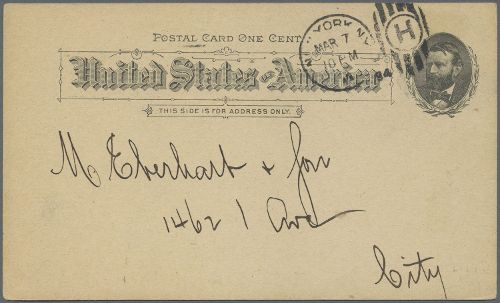 POSTAL CARD ONE CENT
United States of America
THIS SIDE IS FOR ADDRESS ONLY.
NEW YORK N.Y.
MAR 7
10 PM
94
H
M Eberhart & Son
1462 1 Ave
City